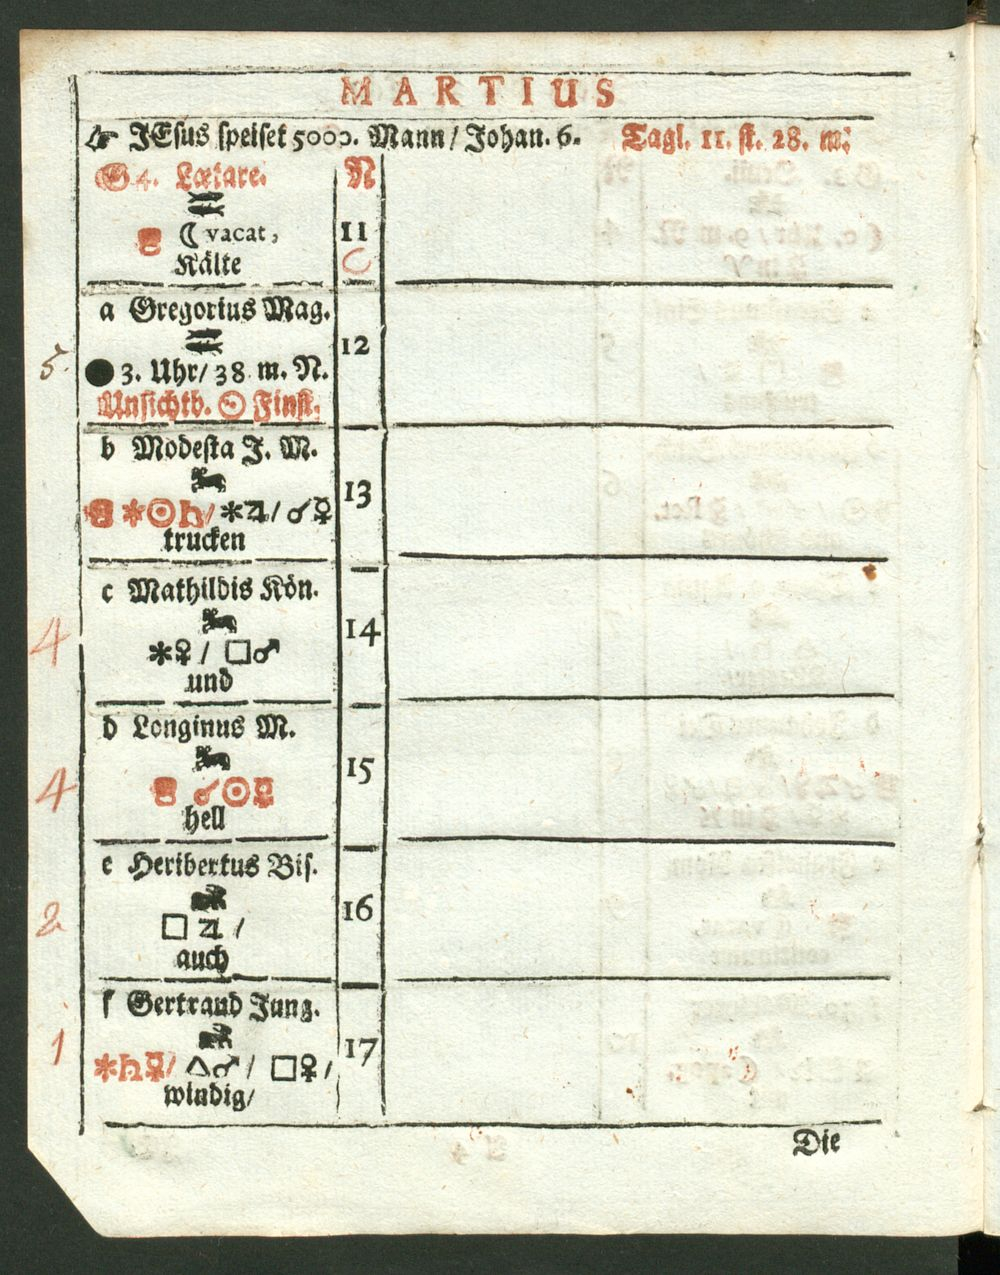 MARTIUS
☞ JEsus speiset 5000. Mann / Johan. 6. Tagl. 11. st. 28. m:
G 4. Lætare. N
♓
☾ vacat, 11
Kälte
a Gregorius Mag.
♓ 12
5.
● 3. Uhr / 38 m. N.
Unsichtb. ☉ Finst.
b Modesta J. M.
♈ 13
⚹☉♄ / ⚹♃ / ☌☿
trucken
c Mathildis Kön.
♈ 14
4
⚹♀ / □♂
und
d Longinus M.
♈ 15
4
☌☉☿
hell
e Heribertus Bis.
♉ 16
2
□ ♃ /
auch
f Gertraud Jung.
♉ 17
1
⚹♄☿ / △♂ / □♀ /
windig /
Die